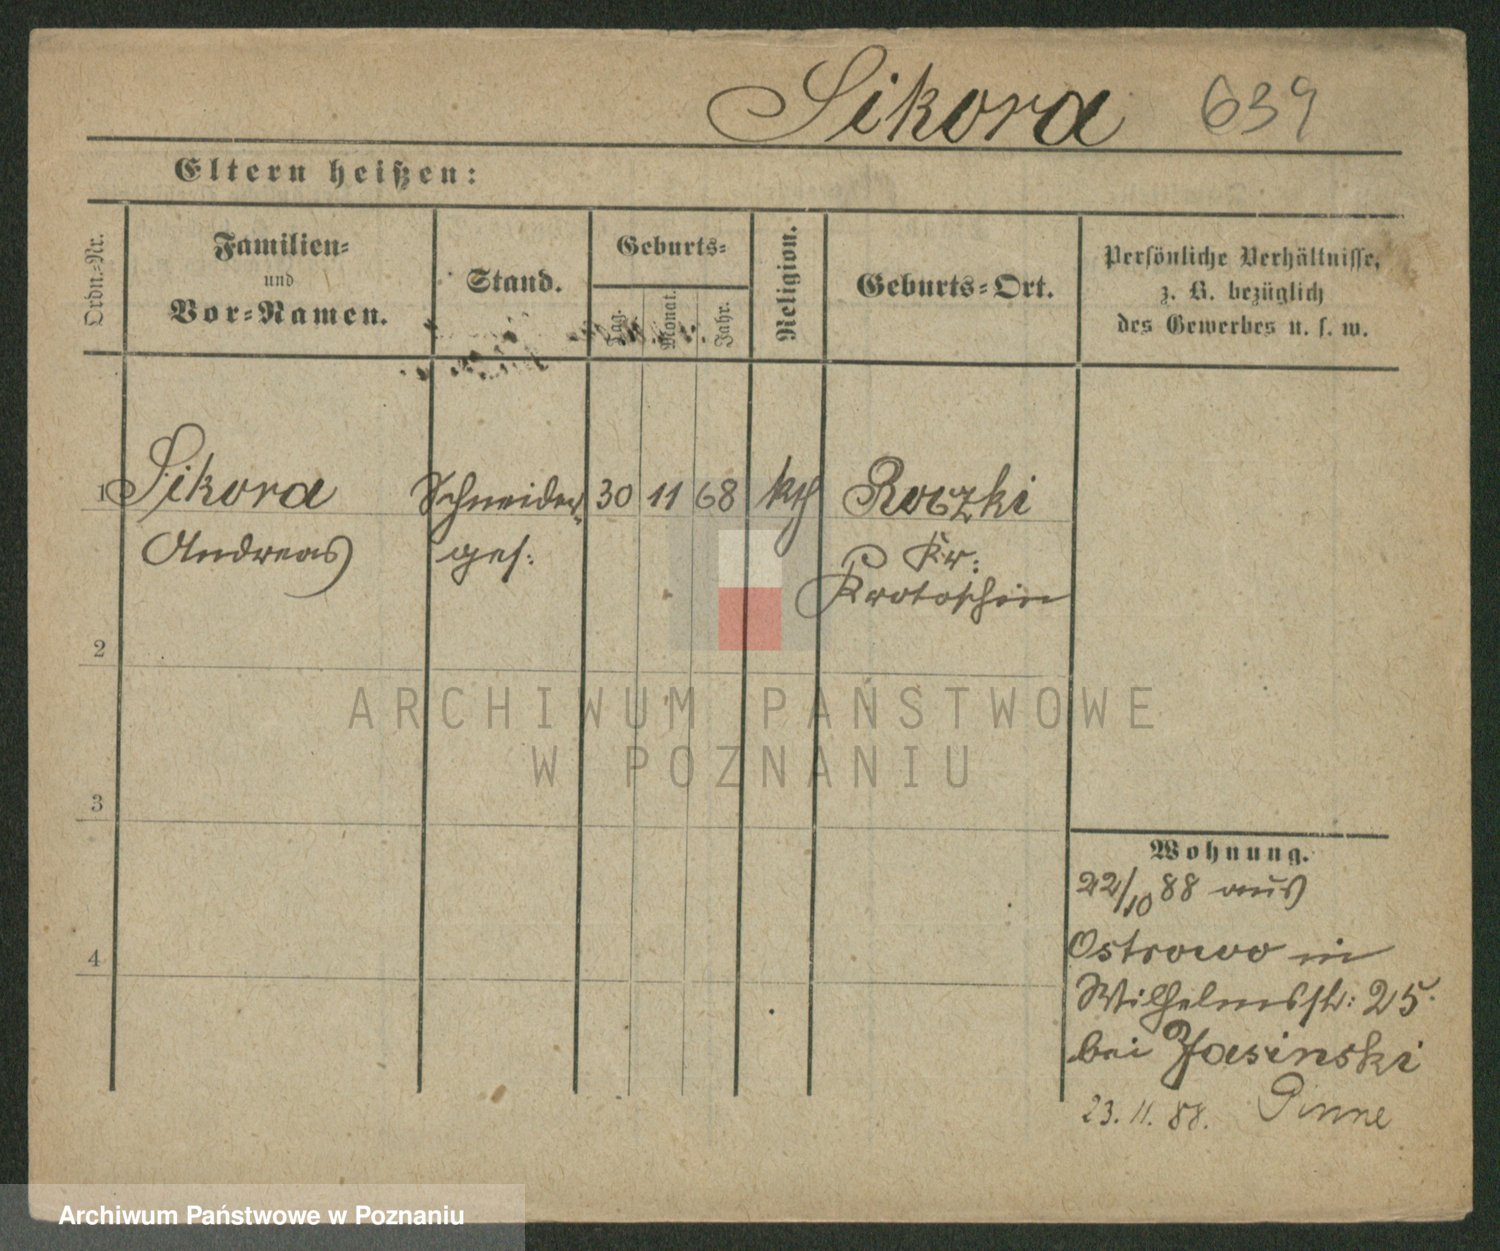 Sikora 639
Eltern heißen:
Ordn.-Nr.
Familien-
und
Vor-Namen.
Stand.
Geburts-
Tag.
Monat.
Jahr.
Religion.
Geburts-Ort.
Persönliche Verhältnisse,
z. B. bezüglich
des Gewerbes u. s. w.
1 Sikora Schneider- 30 11 68 kth Roszki
Andreas ges: Kr:
Krotoschin
2
3
4
Wohnung.
22/10 88 aus
Ostrowo in
Wilhelmsstr: 25.
bei Jasinski
23. 11. 88. Pinne
ARCHIWUM PAŃSTWOWE
W POZNANIU
Archiwum Państwowe w Poznaniu